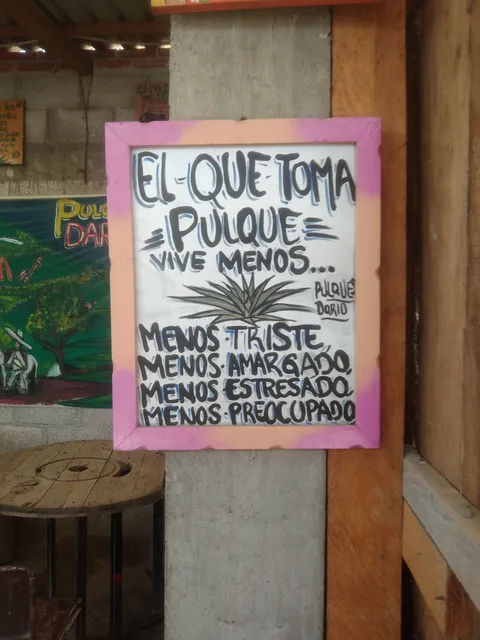 EL-QUE-TOMA
PULQUE
VIVE MENOS...
PULQUE
DARIO
MENOS-TRISTE,
MENOS-AMARGADO,
MENOS ESTRESADO,
MENOS-PREOCUPADO
PUL
DAR